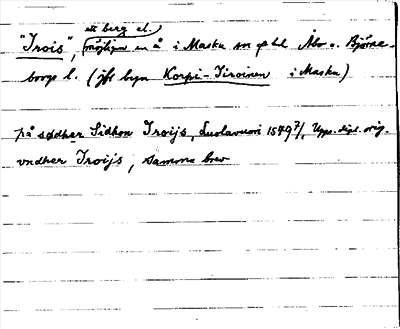 ett berg el.
"Irois", möjligen en å i Masku sn på tul Åbo o. Björne-
borgs l. (jfr byn Korpi-Iiroinen i Masku)
på sødher Sidhon Iroijs, Luolavuori 1549 7/1 Upps. dipl. orig.
vndher Iroijs, samma brev